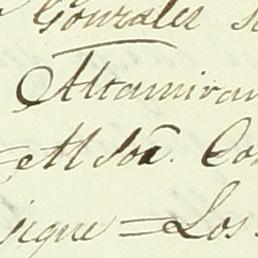 Gonzalez
Altamiran
= All Soa. Co
sigue = Los